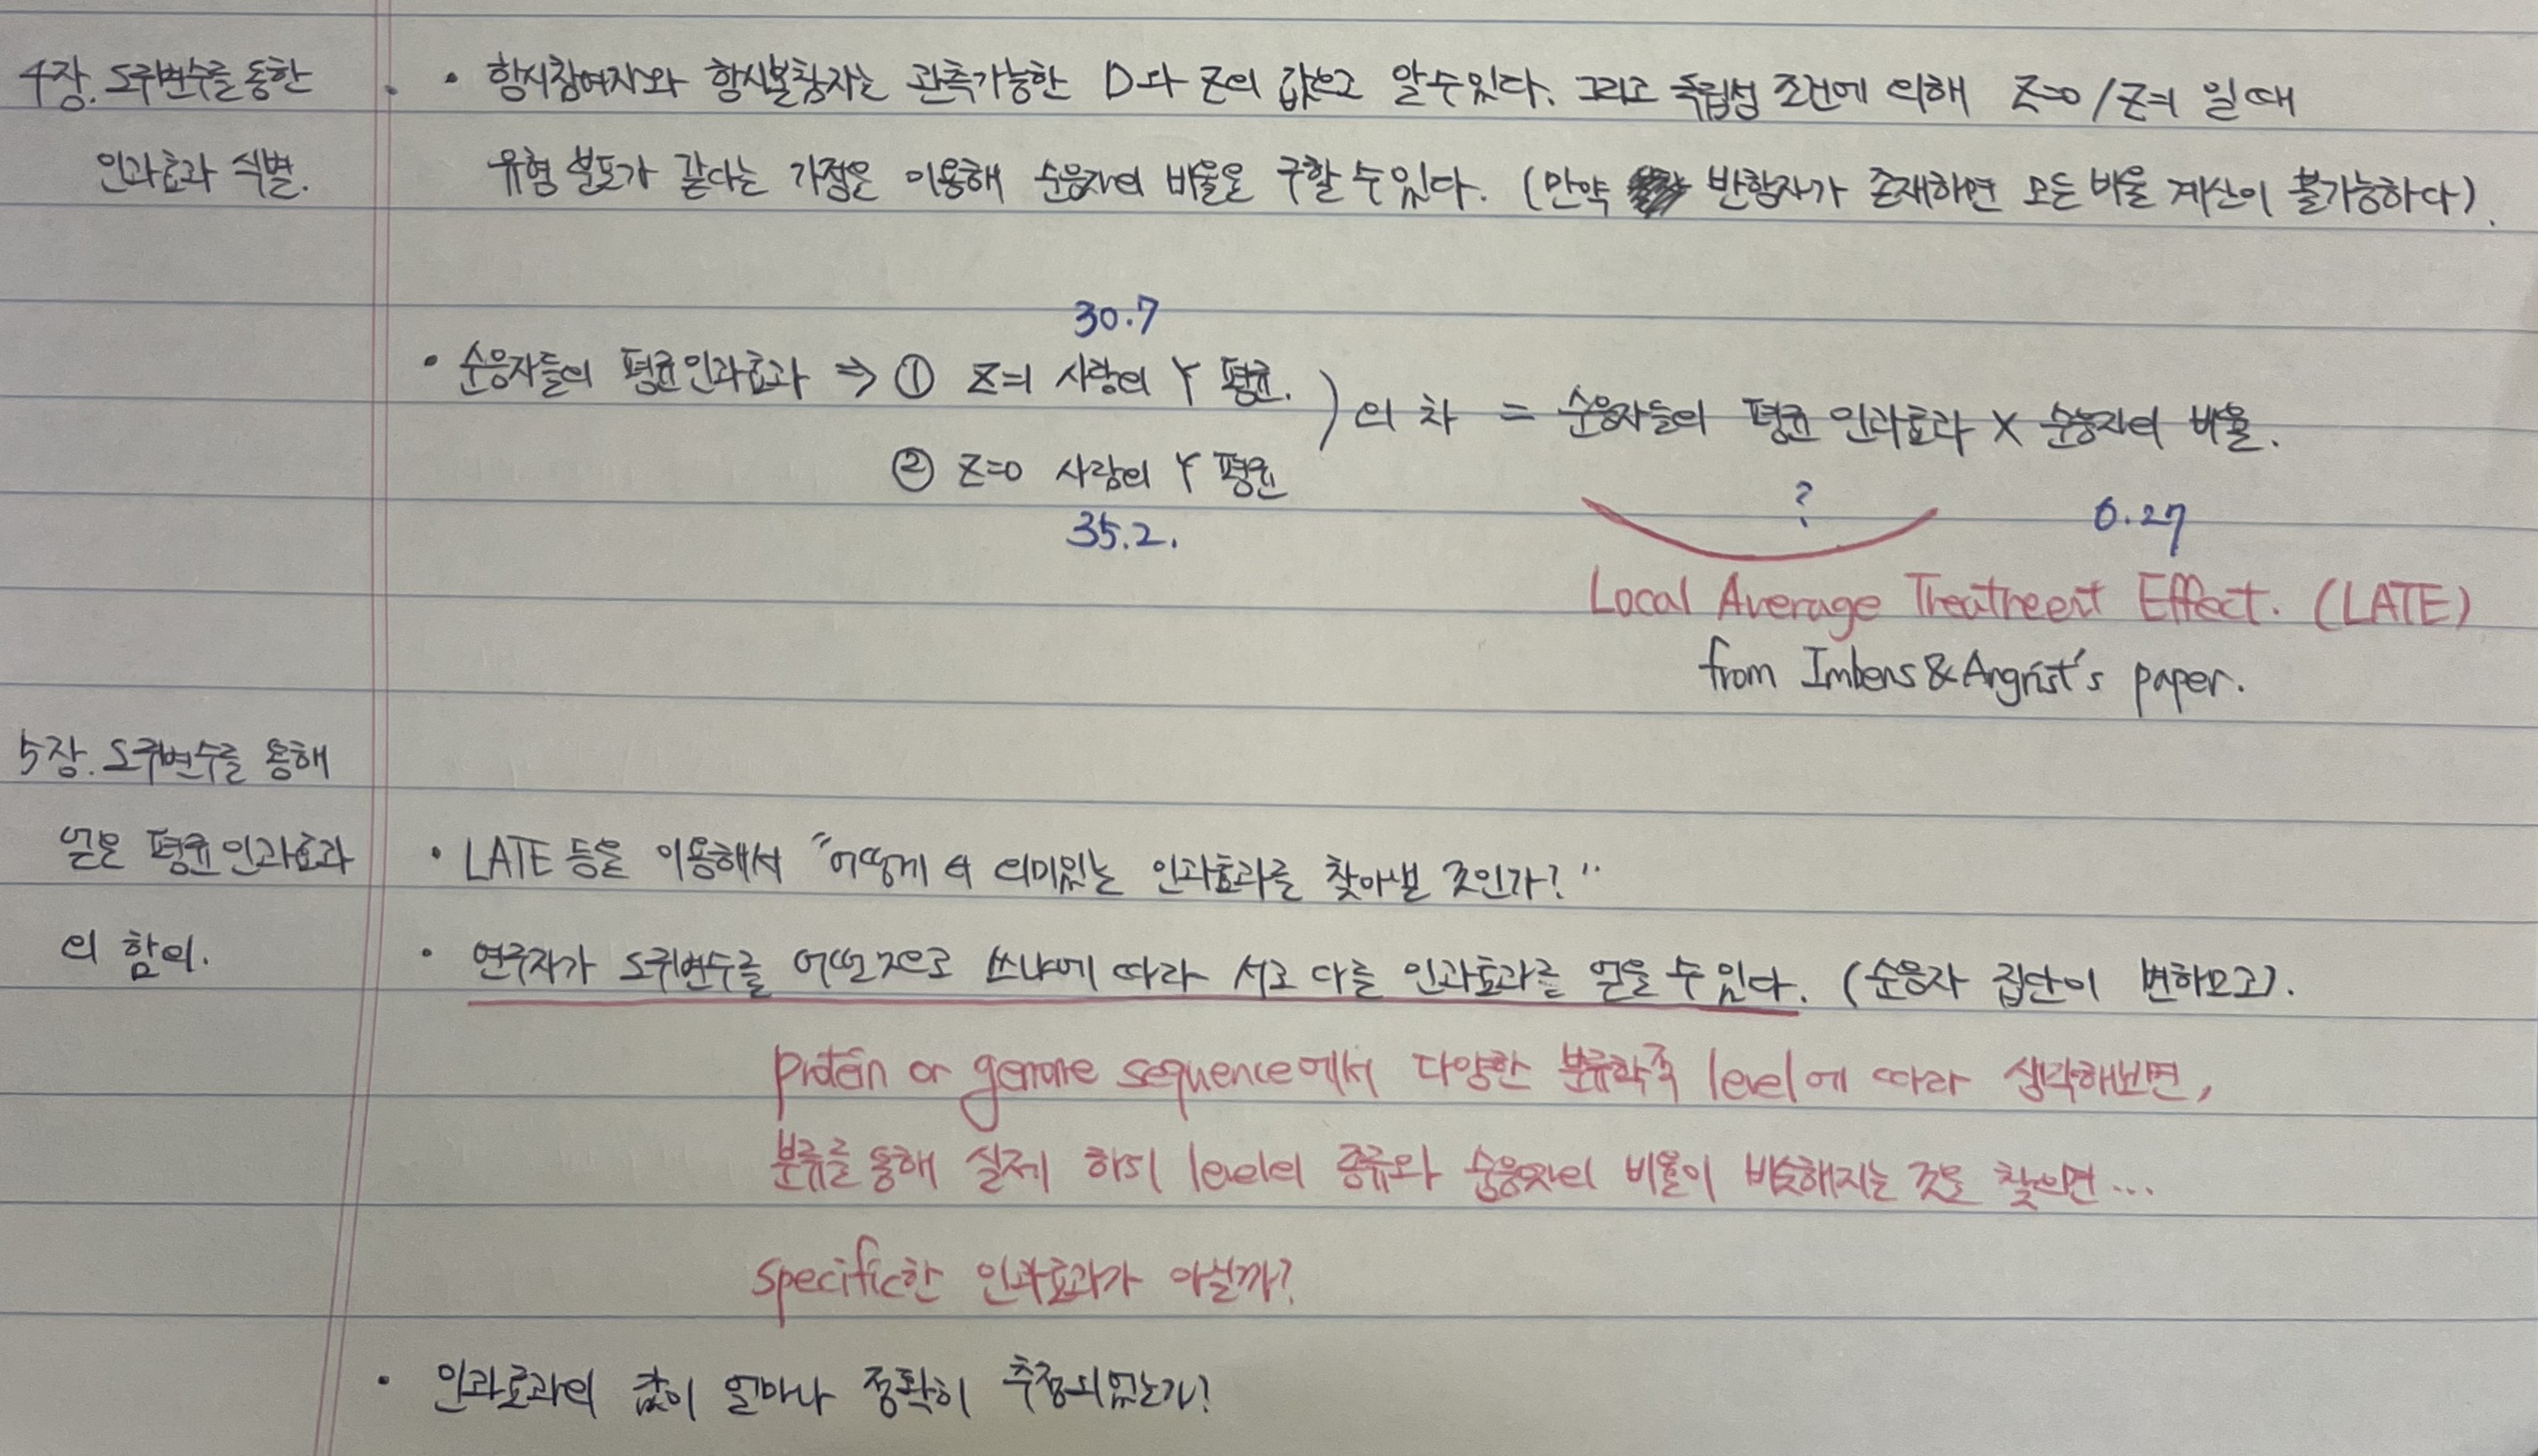 4장. 도구변수를 통한
인과효과 식별.
• 항시참여자와 항시불참자는 관측가능한 D와 Z의 값으로 알 수 있다. 그리고 독립성 조건에 의해 Z=0/Z=1 일 때
유형 분포가 같다는 가정을 이용해 순응자의 비율을 구할 수 있다. (만약 반항자가 존재하면 모든 비율 계산이 불가능하다).
30.7
• 순응자들의 평균인과효과 ⇒ ① Z=1 사람의 Y 평균.
) 의 차 = 순응자들의 평균 인과효과 × 순응자의 비율.
② Z=0 사람의 Y 평균
35.2.
? 0.27
Local Average Treatment Effect. (LATE)
from Imbens & Angrist's paper.
5장. 도구변수를 통해
얻은 평균인과효과
의 함의.
• LATE 등을 이용해서 "어떻게 더 의미있는 인과효과를 찾아낼 것인가?"
• 연구자가 도구변수를 어떤것으로 쓰냐에 따라 서로 다른 인과효과를 얻을 수 있다. (순응자 집단이 변하므로).
protein or genome sequence에서 다양한 분류학적 level에 따라 생각해보면,
분류를 통해 실제 하위 level의 종류와 순응자의 비율이 비슷해지는 것을 찾으면...
specific한 인과효과가 아닐까?
• 인과효과의 값이 얼마나 정확히 추정되었는가?